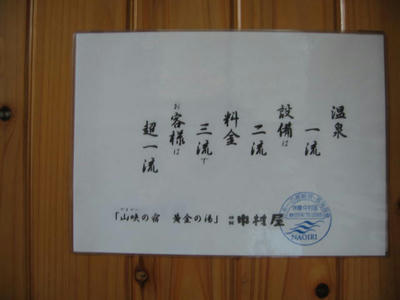 温泉
一流
設備は
二流
料金
三流で
お客様は
超一流
「山峡の宿 黄金の湯」 中村屋
NAGIRI